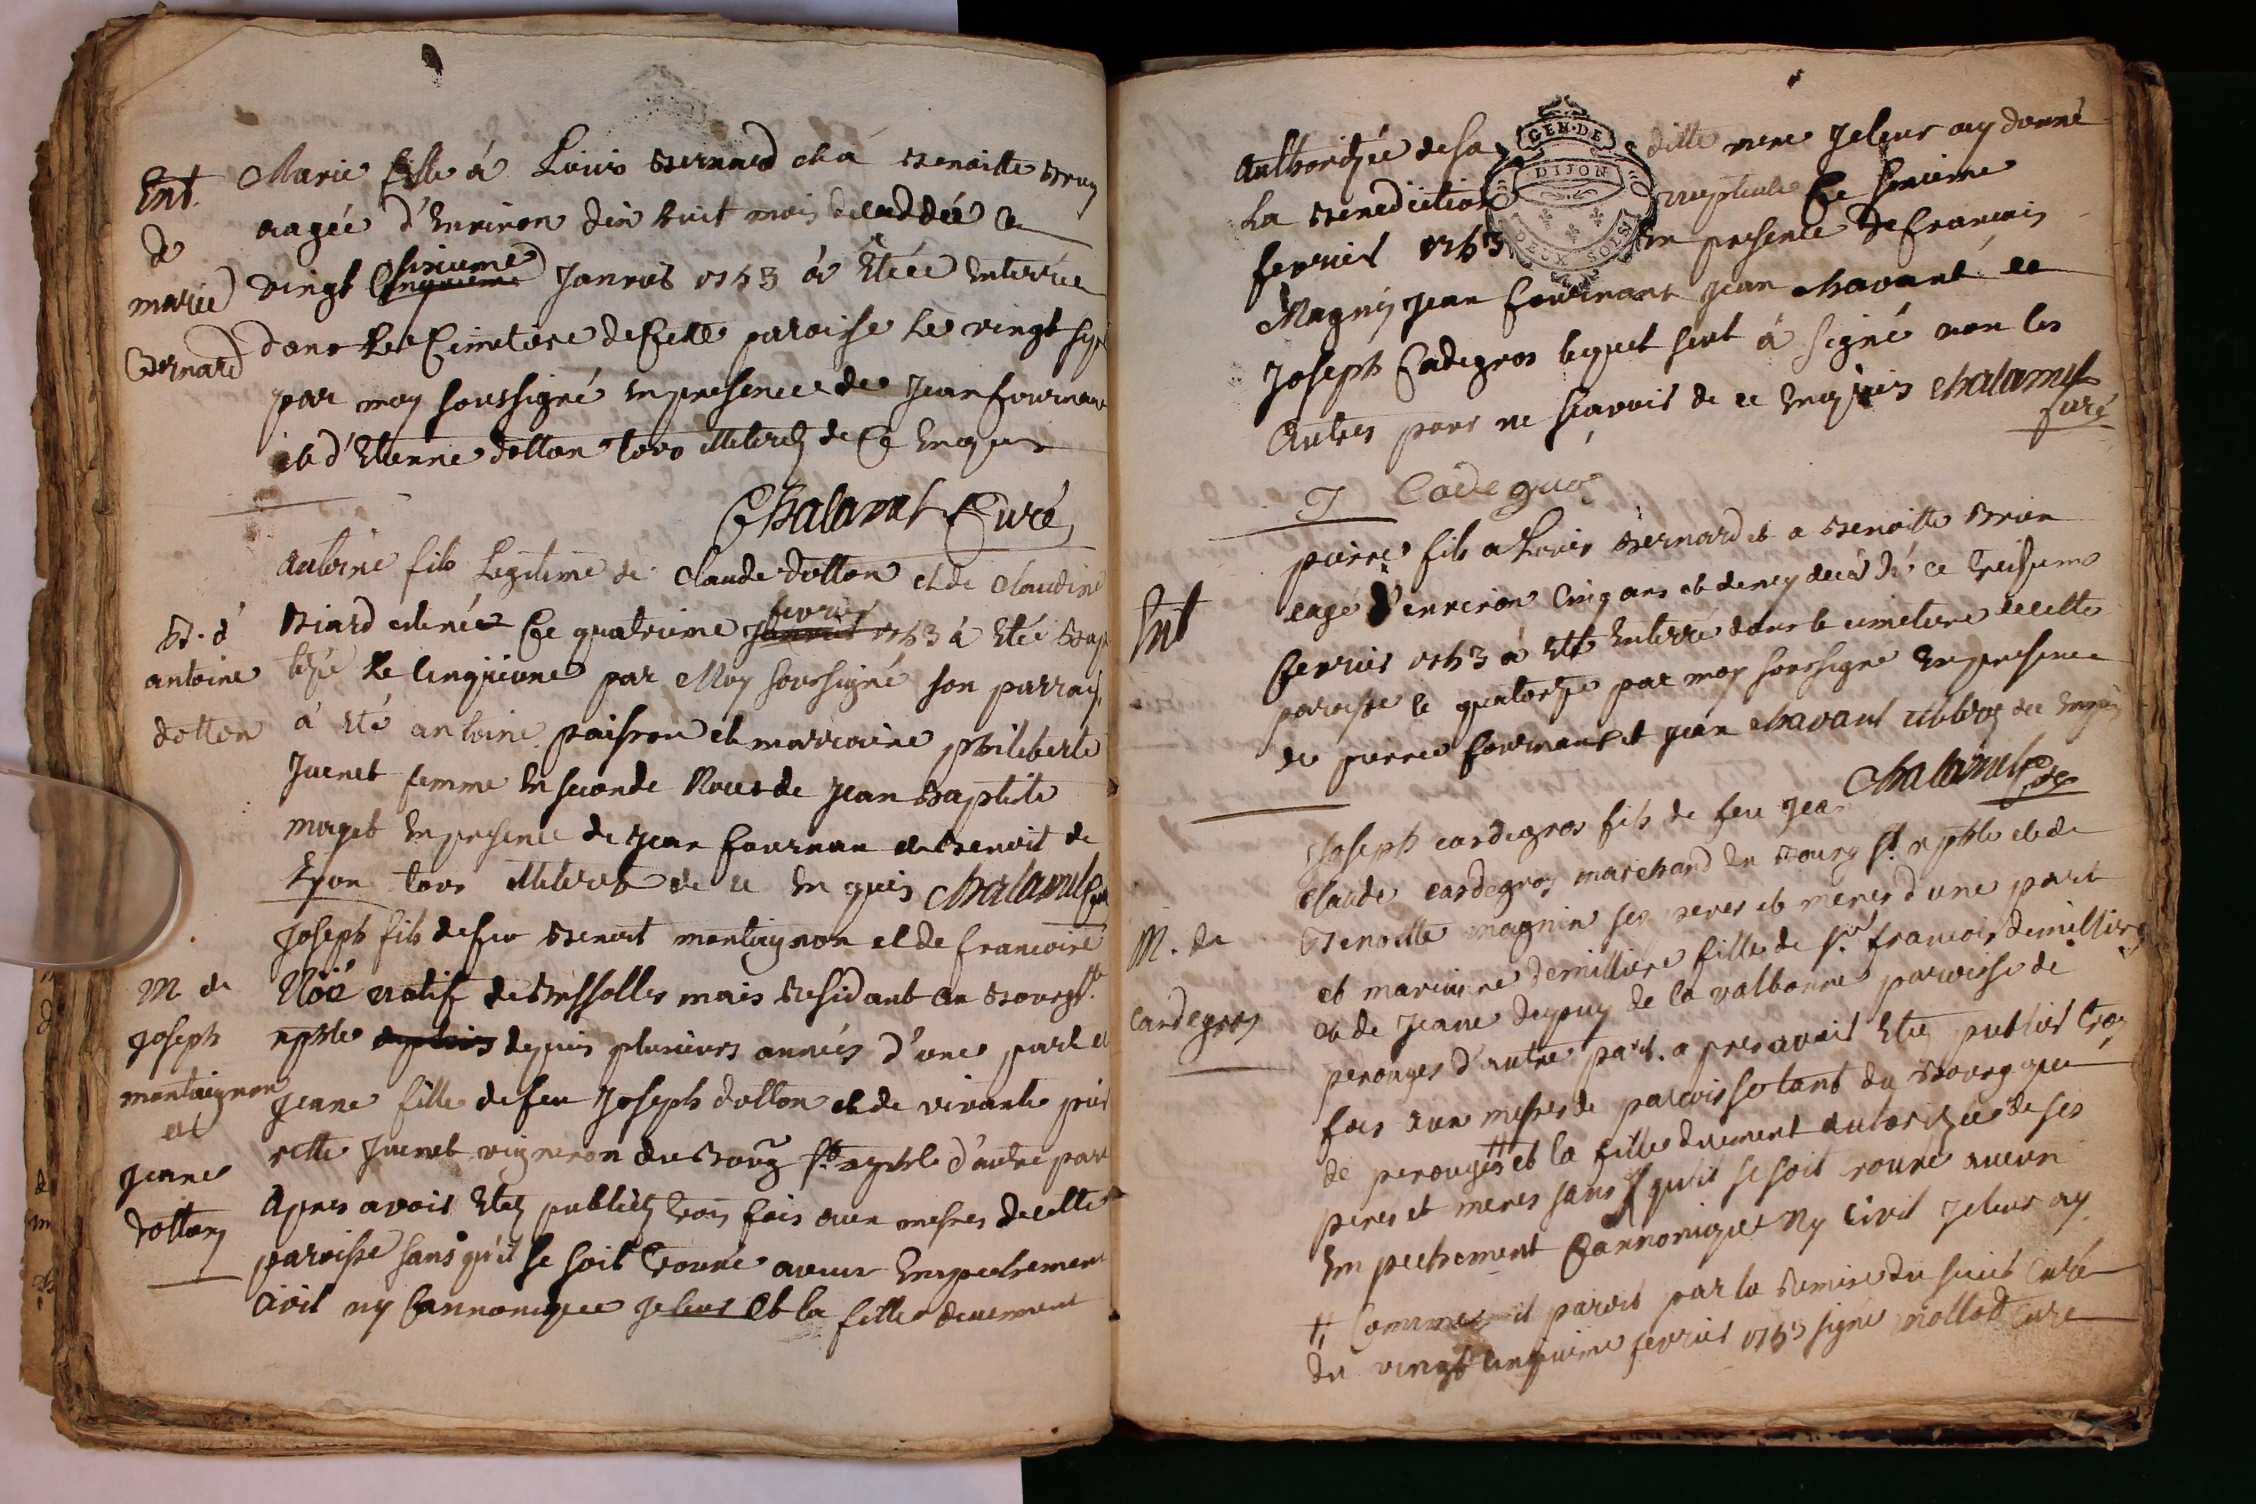 Ent.
de
marie
Bernard
Marie fille à Louis Bernard et à Benoitte Brun
aagée d'Environ dix huit mois deceddée le
vingt Cinquieme sixieme Janvier 1743 à Etée Enterrée
dans le Cimetiere de Cette paroisse le vingt sept
par moy soussigné en presence de Jean fournan
et d'Etienne dotton tous illiterez de Ce Enquis
Chalamel Curé
B. d'
antoine
dotton
antoine fils Legitime de Claude dotton et de Claudine
Biard est né Ce quatrieme Janvier fevrier 1743 à Eté Bap
tizé le Cinquieme par Moy soussigné son parrain
à Eté antoine poisson et marraine philiberte
Juenet femme En seconde Noces de Jean Baptiste
maget En presence de Jean fournan et Benoit de
Lyon tous illiterez de ce en quis Chalamel Curé
M. de
Joseph
montaignon
et
Jeanne
dotton
Joseph fils de feu Benoit montaignon et de francoise
Noé natif de Bressolles mais Residant au Bourg St.
xphle depuis depuis plusieurs années d'une part et
Jeane fille de feu Joseph dotton et de vivante pier
rette Juenet vigneron du Bourg St. xphle d'autre part
Apres avoir Etez publiéz trois fois aux messes de cette
paroisse sans qu'il se soit trouvé aucun Empechement
Civil ny Cannonique je leur et la fille duement
authorizée de sa ditte mere Je leur ay donné
La Benediction nuptiale Ce sixieme
fevrier 1743 En presence de francois
Magnin Jean fournant Jean chavant et
Joseph Cadegros lequel seul à signé non les
Autres pour ne scavoir de ce enquis Chalamel
Curé
J Cadegros
GEN. DE
DIJON
DEUX SOLS
Ent
pierre fils a Louis Bernard et a Benoitte Brun
eagé d'environ Cinq ans et demy decedé ce treizieme
fevrier 1743 à eté Enterré dans le cimetiere de cette
paroisse le quatorze par moy soussigné En presence
de pierre fournant et jean chavant illiterez de ce enquis
Chalamel Curé
M. de
Cardegros
Joseph cardegros fils de feu Jean
Claude cardegros marchand du Bourg St. xphle et de
Benoitte magnin ses peres et meres d'une part
et mariaine demilliere fille de sr. francois demilliere
et de Jeane dupuy de la valbonne paroisse de
perouges d'autre part. apres avoir Etez publiés trois
fois aux messes de paroisse tant du Bourg que
de perouges # et la fille duement autorizée de ses
peres et meres sans qu'il se soit trouvé aucun
Empechement Cannonique Ny Civil Je leur ay
# Comme il paroit par la Remise du sieur Curé
du vingt cinquieme fevrier 1743 signé Mollod Curé